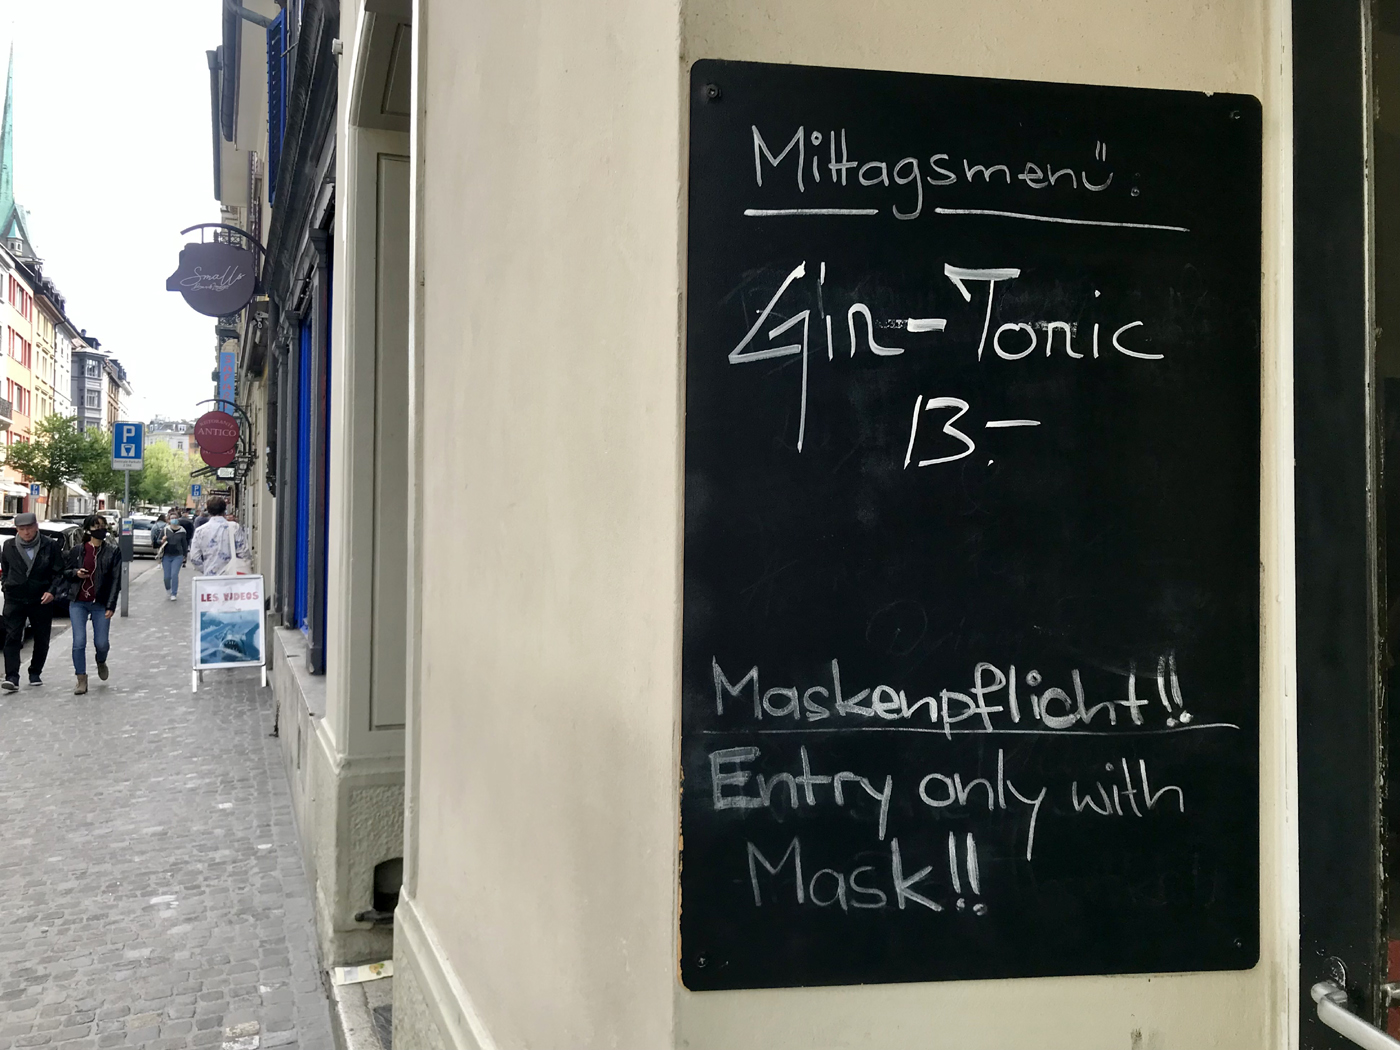 Mittagsmenü:
Gin-Tonic
13.-
Maskenpflicht!!
Entry only with
Mask!!
Smalls
ANTICO
P
LES VIDEOS